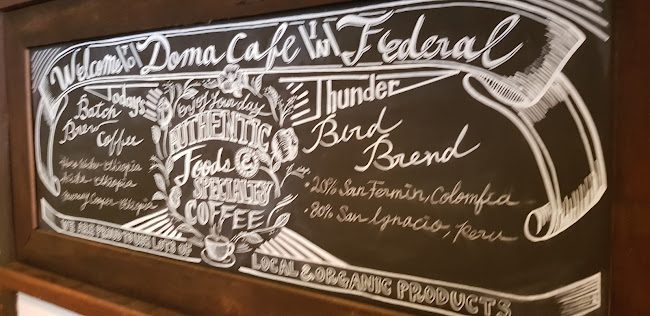 Welcome to Doma Cafe in Federal
Today's
Batch
Brew
Coffee
Ethiopia
Ethiopia
Ethiopia
enjoy your day
AUTHENTIC
Foods &
SPECIALTY
COFFEE
Thunder
Bird
Brend
• 20% San Fermin, Colombia
• 80% San Ignacio, Peru
WE ARE PROUD TO USE LOTS OF
LOCAL & ORGANIC PRODUCTS